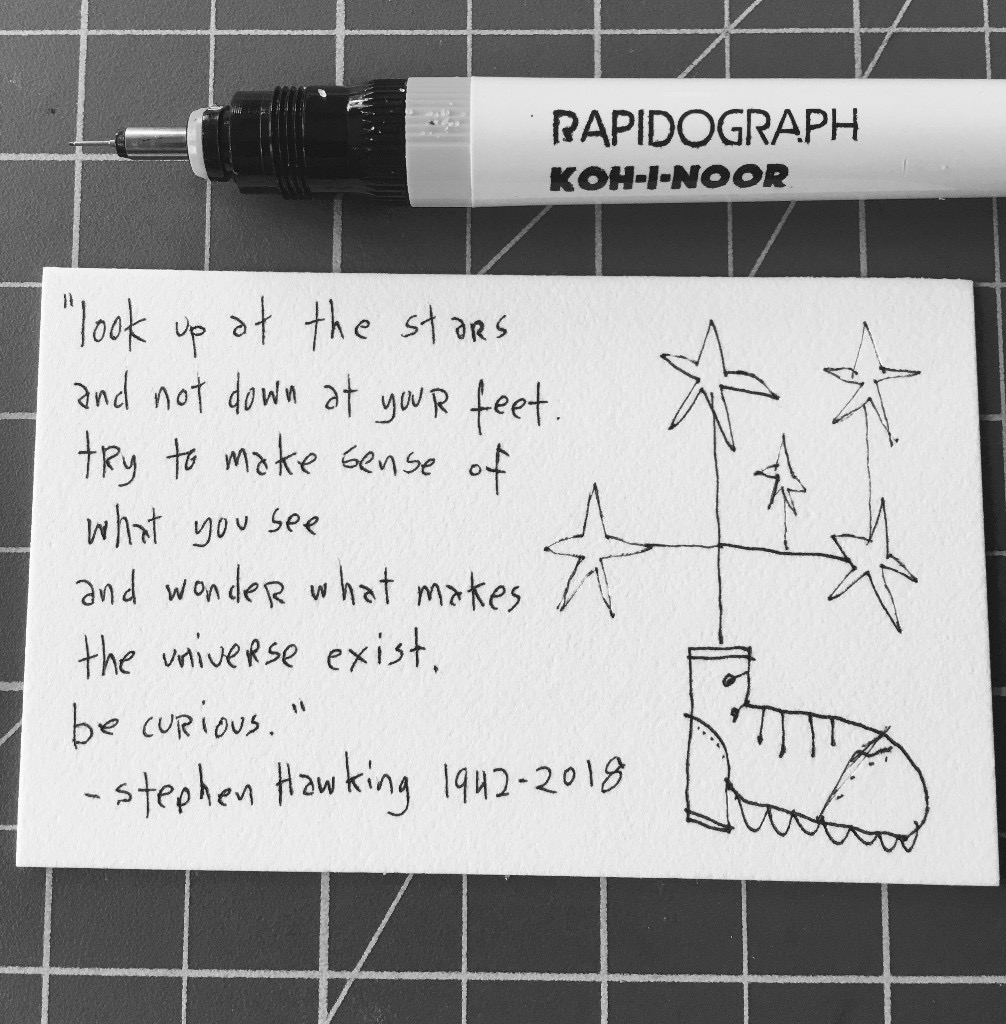 RAPIDOGRAPH
KOH-I-NOOR
"look up at the stars
and not down at your feet.
try to make sense of
what you see
and wonder what makes
the universe exist.
be curious."
- stephen Hawking 1942-2018